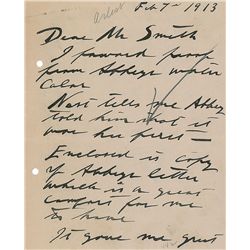 artist
Feb 7 - 1913
Dear Mr Smith
I forward proof
from Abbeys water
Color
Nast tells me Abbey
told him that it
was his first -
Enclosed is copy
of Abbeys letter
which is a great
comfort for me
to have
It gave me great